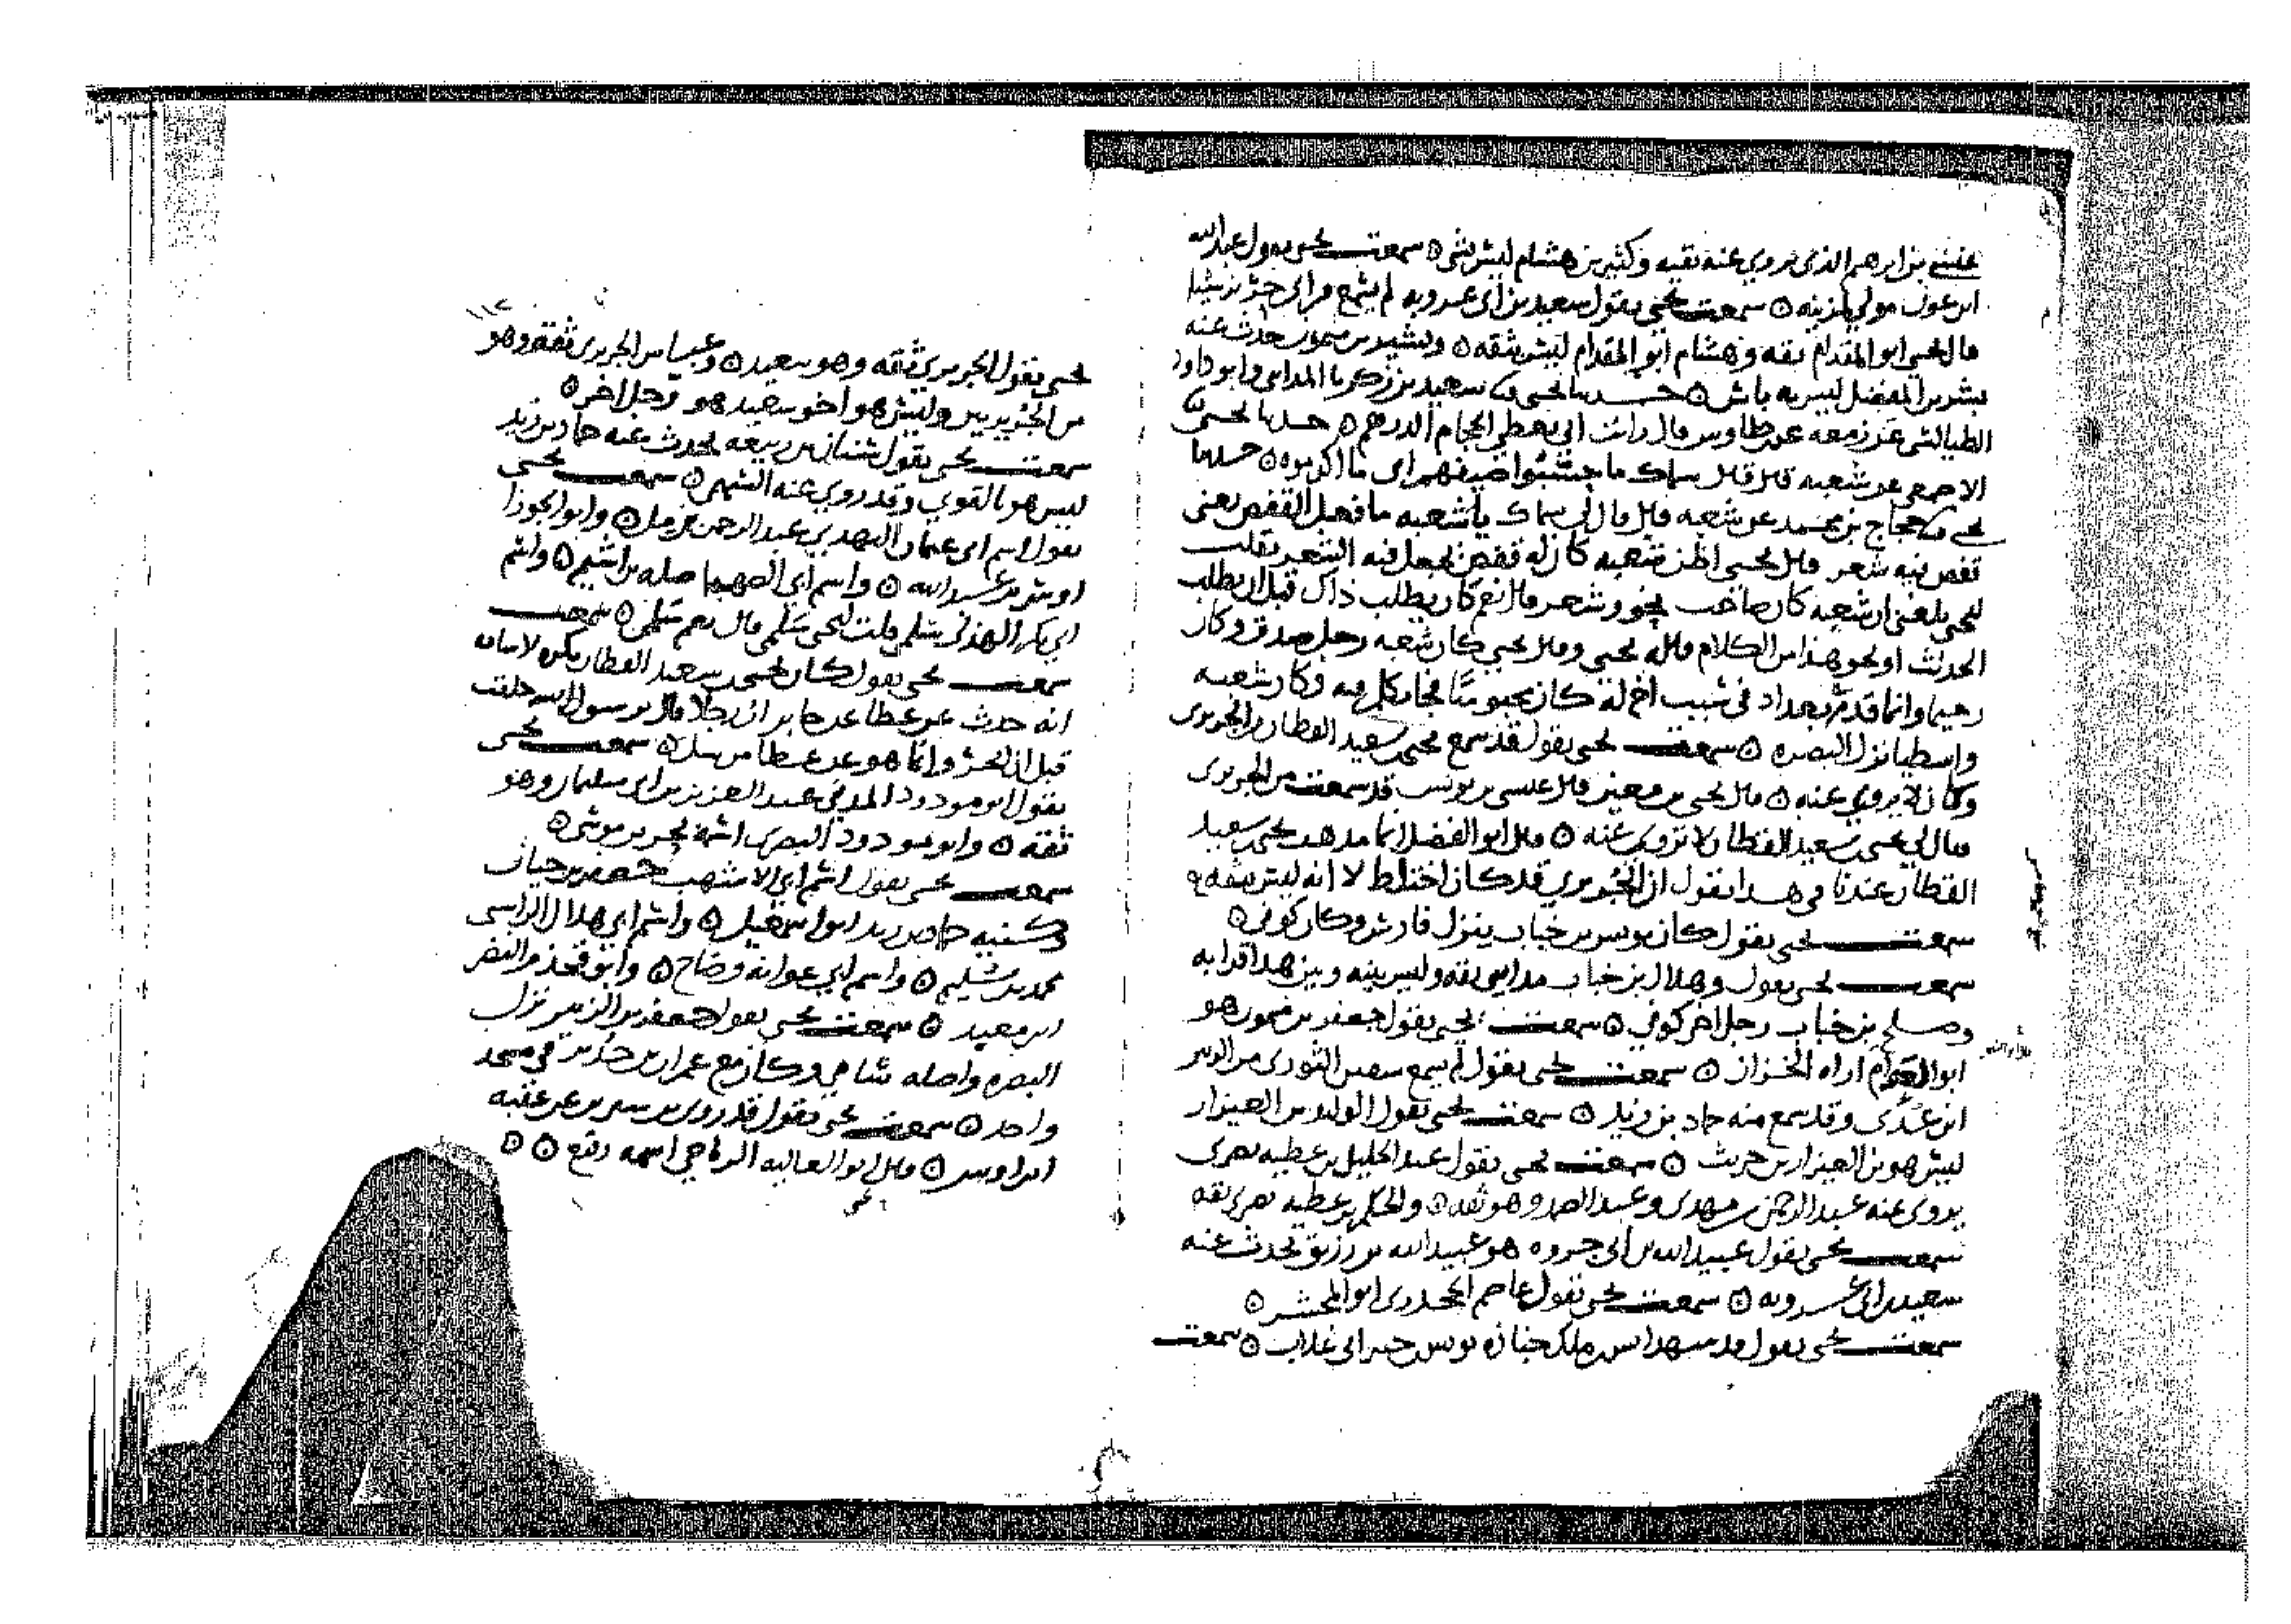 عيسى بن ابرهيم الذي يروي عنه بقيه وكثير بن هشام ليس بشي ۞ سمعت يحيى يقول عبد الله
ابن عون مولى لمزينه ۞ سمعت يحيى يقول سعيد بن ابي عروبه لم يسمع من ابي بشر شيا
قال يحيى ابو المقدام ثقه وهشام ابو المقدام ليس بثقه ۞ وبشير بن ميمون حدث عنه
بشر بن المفضل ليس به باس ۞ حدثنا يحيى نا سعيد بن زكريا المدايني وابو داود
الطيالسي عن زمعه عن طاوس قال رايت ابي يعطي الحجام الدرهم ۞ حدثنا يحيى نا
الاصمعي عن شعبه قال قال سماك ما حسبوا ضيفهم اي ما اكرموه ۞ حدثنا
يحيى نا حجاج بن محمد عن شعبه قال قال لي سماك يا شعبه ما فعل القفص يعني
قفص فيه شعر قال يحيى اظن شعبه كان له قفص يجعل فيه الشعر فقلت
ليحيى بلغني ان شعبه كان صاحب نحو وشعر قال نعم كان يطلب ذاك قبل ان يطلب
الحديث او نحو هذا من الكلام قاله يحيى وقال يحيى كان شعبه رجل صدق وكان
رحيما وانما قدم بغداد في سبب اخ له كان محبوسا فجا يكلم فيه وكان شعبه
واسطيا نزل البصره ۞ سمعت يحيى يقول قد سمع يحيى بن سعيد القطان من الجريري
وكان لا يروي عنه ۞ قال يحيى بن معين قال عيسى بن يونس قد سمعت من الجريري
فقال لي يحيى بن سعيد القطان لا تروي عنه ۞ قال ابو الفضل انما مذهب يحيى بن سعيد
القطان عندنا في هذا يقول ان الجريري قد كان اختلط لا انه ليس بثقه ۞
سمعت يحيى يقول كان يونس بن خباب ينزل فارس وكان كوفي ۞
سمعت يحيى يقول وهلال بن خباب مدايني ثقه وليس بينه وبين هذا قرابه
وصلح بن خباب رجل اخر كوفي ۞ سمعت يحيى يقول جعفر بن ميمون هو
ابو العوام اراه الخزاز ۞ سمعت يحيى يقول لم يسمع سفين الثوري من الزبير
ابن عدي وقد سمع منه حماد بن زيد ۞ سمعت يحيى يقول الوليد بن العيزار
ليس هو بن العيزار بن حريث ۞ سمعت يحيى يقول عبد الجليل بن عطيه بصري
يروي عنه عبد الرحمن بن مهدي وعبد الصمد وهو ثقه ۞ والحكم بن عطيه بصري ثقه
سمعت يحيى يقول عبيد الله بن ابي جروه هو عبيد الله بن رزيق يحدث عنه
سعيد بن ابي عروبه ۞ سمعت يحيى يقول عاصم الجحدري ابو المجشر ۞
سمعت يحيى يقول قد شهد انس بن ملك جنازه يونس بن جبير ابي غلاب ۞ سمعت
يحيى يقول الجريري ثقه وهو سعيد ۞ وعباس الجريري ثقه وهو
من الجريريين وليس هو اخو سعيد هو رجل اخر ۞
سمعت يحيى يقول سنان بن ربيعه يحدث عنه حماد بن زيد
ليس هو بالقوي وقد روي عنه السهمي ۞ سمعت يحيى
يقول اسم ابي عثمان النهدي عبد الرحمن بن مل ۞ وابو الجوزا
اوس بن عبد الله ۞ واسم ابي الصهبا صله بن اشيم ۞ واسم
ابي بكر الهذلي سلمى قلت ليحيى سلمى قال نعم سلمى ۞ سمعت
سمعت يحيى يقول كان يحيى بن سعيد القطان
انه حدث عن عطا عن جابر ان رجلا قال يرسول الله حلقت
قبل ان انحر وانما هو عن عطا مرسل ۞ سمعت يحيى
يقول ابو مودود المدني عبد العزيز بن ابي سليمان وهو
ثقه ۞ وابو مودود البصري اسمه بحر بن موسى ۞
سمعت يحيى يقول اسم ابي الاشهب جعفر بن حيان
وكنيه حماد بن زيد ابو اسمعيل ۞ واسم ابي هلال الراسبي
محمد بن سليم ۞ واسم ابي عوانه وضاح ۞ وابو قحذم النضر
ابن معبد ۞ سمعت يحيى يقول جعفر بن الزبير نزل
البصره واصله شامي وكان مع عمران بن حدير في مسجد
واحد ۞ سمعت يحيى يقول قد روى بن سيرين عن عقبه
ابن اوس ۞ قال ابو العاليه الرياحي اسمه رفيع ۞ ۞